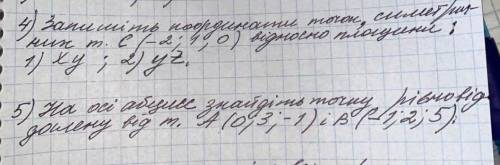 4) Запишіть координати точок, симетрич-
них т. С (-2; 4; 0) відносно площини:
1) xy ; 2) yz.
5) На осі абсцис знайдіть точку рівновід-
далену від т. А (0; 3; -1) і В (-1; 2; 5).